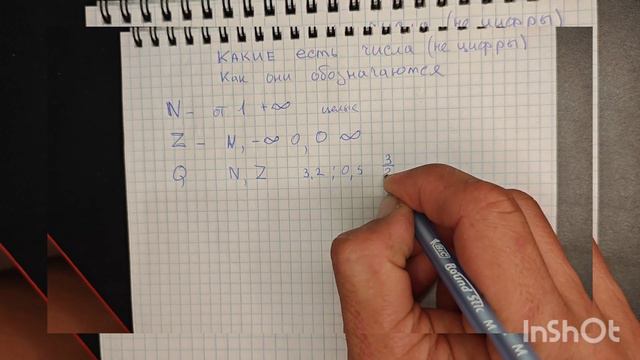 (не цифры)
КАКИЕ есть числа (не цифры)
Как они обозначаются
N - от 1 +∞ целые
Z - N, -∞ 0, 0 ∞
Q N, Z 3,2 ; 0,5 3/2
BIC Round Stic M
InShOt